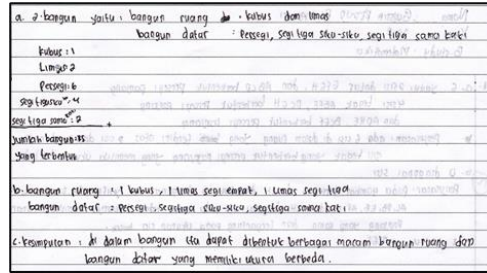 a. 2. bangun yaitu : bangun ruang : kubus dan limas
bangun datar : Persegi, segitiga siku-siku, segitiga sama kaki
kubus : 1
Limas : 2
Persegi : 6
segitiga siku² : 4
segitiga sama² : 2
Jumlah bangun : 15
yang terbentuk
b. bangun ruang : 1 kubus, 1 limas segi empat, 1 limas segi tiga
bangun datar : Persegi, segitiga siku-siku, segitiga sama kaki
c. kesimpulan : di dalam bangun itu dapat dibentuk berbagai macam bangun ruang dan
bangun datar yang memiliki ukuran berbeda.